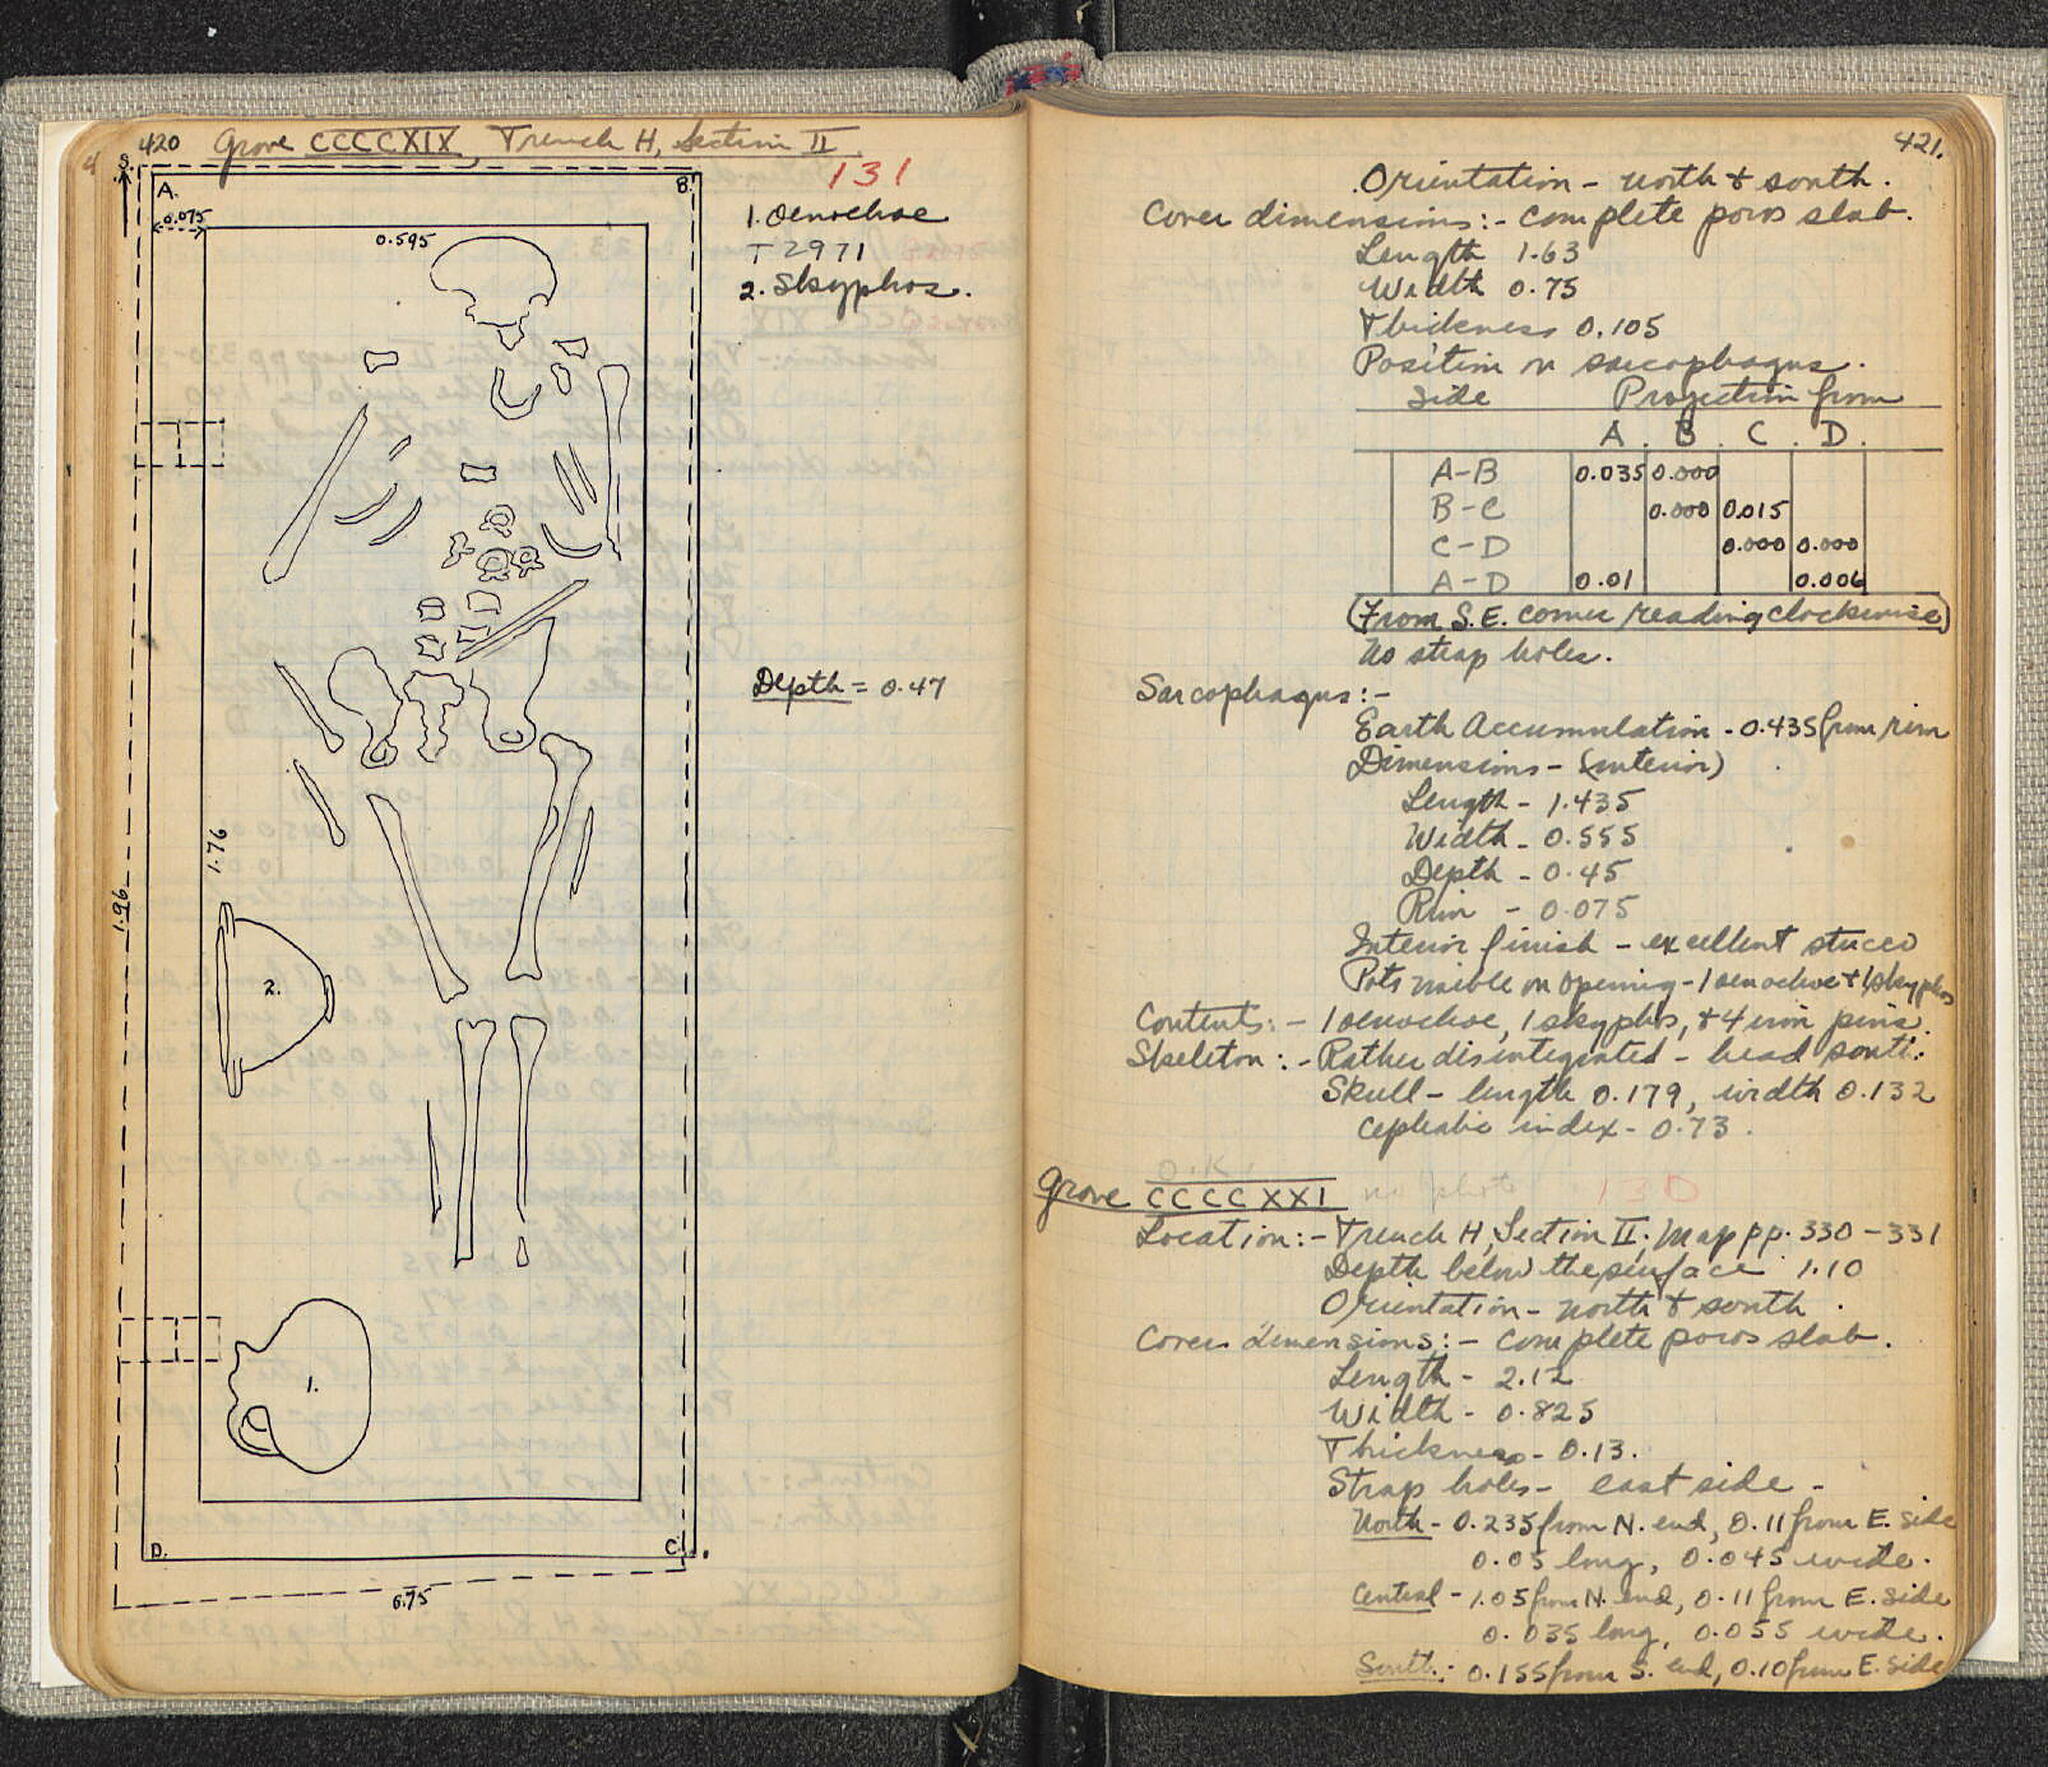 420 Grave CCCCXIX, Trench H, Section II
S.
131
A.
B.
0.075
1. Oenochoe
T 2971
0.595
2. Skyphos.
Depth = 0.47
1.76
1.96
2.
1.
D.
C.
0.75
421.
Orientation - north & south.
Cover dimensions:- complete poros slab.
Length 1.63
Width 0.75
Thickness 0.105
Position on sarcophagus.
Side Projection from
A. B. C. D.
A-B 0.035 0.000
B-C 0.000 0.015
C-D 0.000 0.000
A-D 0.01 0.006
(From S.E. corner reading clockwise)
No strap holes.
Sarcophagus:-
Earth Accumulation - 0.435 from rim
Dimensions - (interior)
Length - 1.435
Width - 0.555
Depth - 0.45
Rim - 0.075
Interior finish - excellent stucco
Pots visible on opening - 1 oenochoe & 1 skyphos
Contents:- 1 oenochoe, 1 skyphos, & 4 iron pins.
Skeleton:- Rather disintegrated - head south.
Skull - length 0.179, width 0.132
Cephalic index - 0.73.
O.K.
Grave CCCCXXI no photo 130
Location:- Trench H, Section II; Map pp. 330-331
Depth below the surface 1.10
Orientation - north & south.
Cover dimensions:- complete poros slab.
Length - 2.12
Width - 0.825
Thickness - 0.13.
Strap holes - east side -
North - 0.235 from N. end, 0.11 from E. side
0.05 long, 0.045 wide.
Central - 1.05 from N. end, 0.11 from E. side
0.035 long, 0.055 wide.
South: 0.155 from S. end, 0.10 from E. side